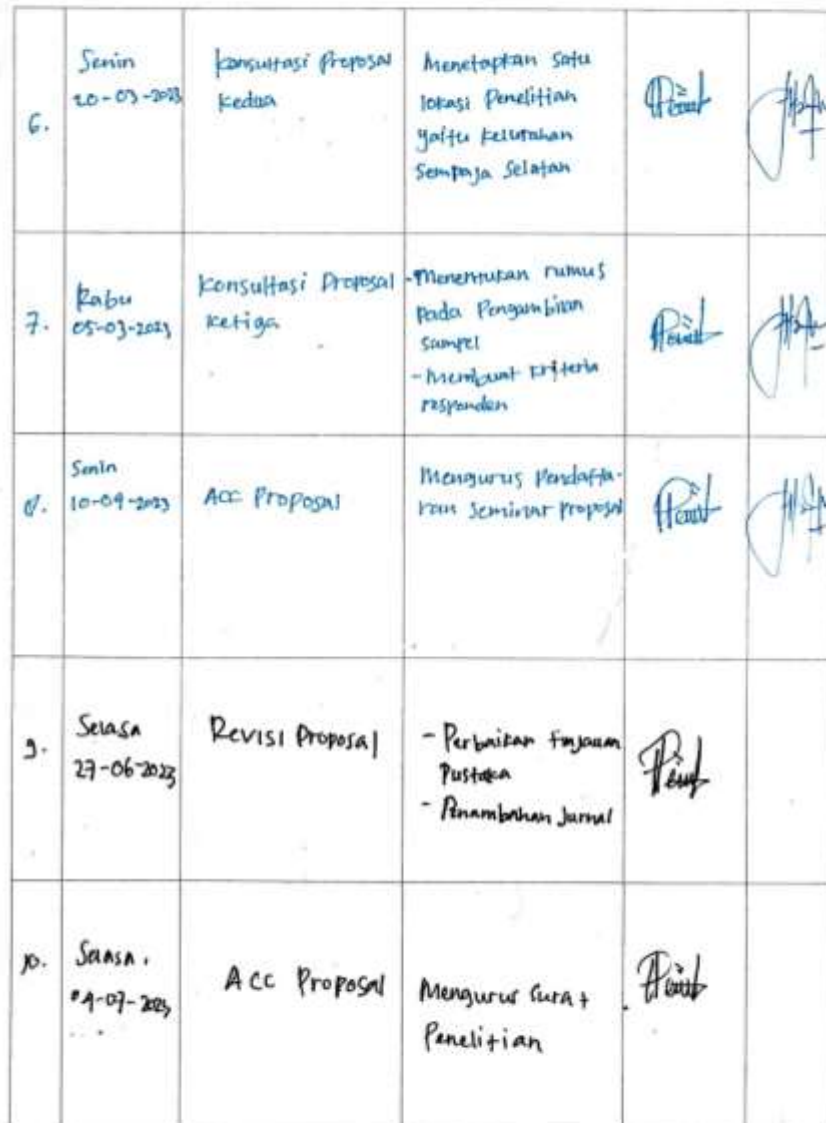 6.
Senin
20-03-2023
Konsultasi Proposal
Kedua
Menetapkan satu
lokasi Penelitian
yaitu Kelurahan
Sempaja Selatan
7.
Rabu
05-03-2023
Konsultasi Proposal
Ketiga
- Menentukan rumus
pada Pengambilan
sampel
- Membuat kriteria
responden
8.
Senin
10-04-2023
ACC Proposal
Mengurus Pendafta-
ran seminar proposal
9.
Selasa
27-06-2023
Revisi Proposal
- Perbaikan tinjauan
Pustaka
- Penambahan Jurnal
10.
Selasa,
04-07-2023
ACC Proposal
Mengurus Surat
Penelitian